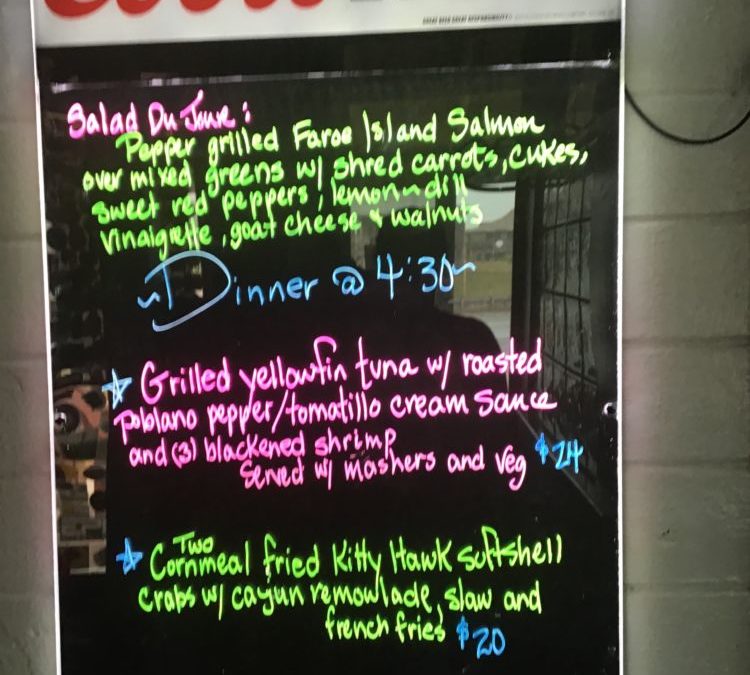 Salad Du Jour:
Pepper grilled Faroe Island Salmon
over mixed greens w/ shred carrots, cukes,
sweet red peppers, lemon-dill
vinaigrette, goat cheese & walnuts
~Dinner @ 4:30~
Grilled yellowfin tuna w/ roasted
poblano pepper/tomatillo cream sauce
and (3) blackened shrimp
Served w/ mashers and veg $24
Two
Cornmeal fried Kitty Hawk softshell
crabs w/ cajun remowlade, slaw and
french fries $20